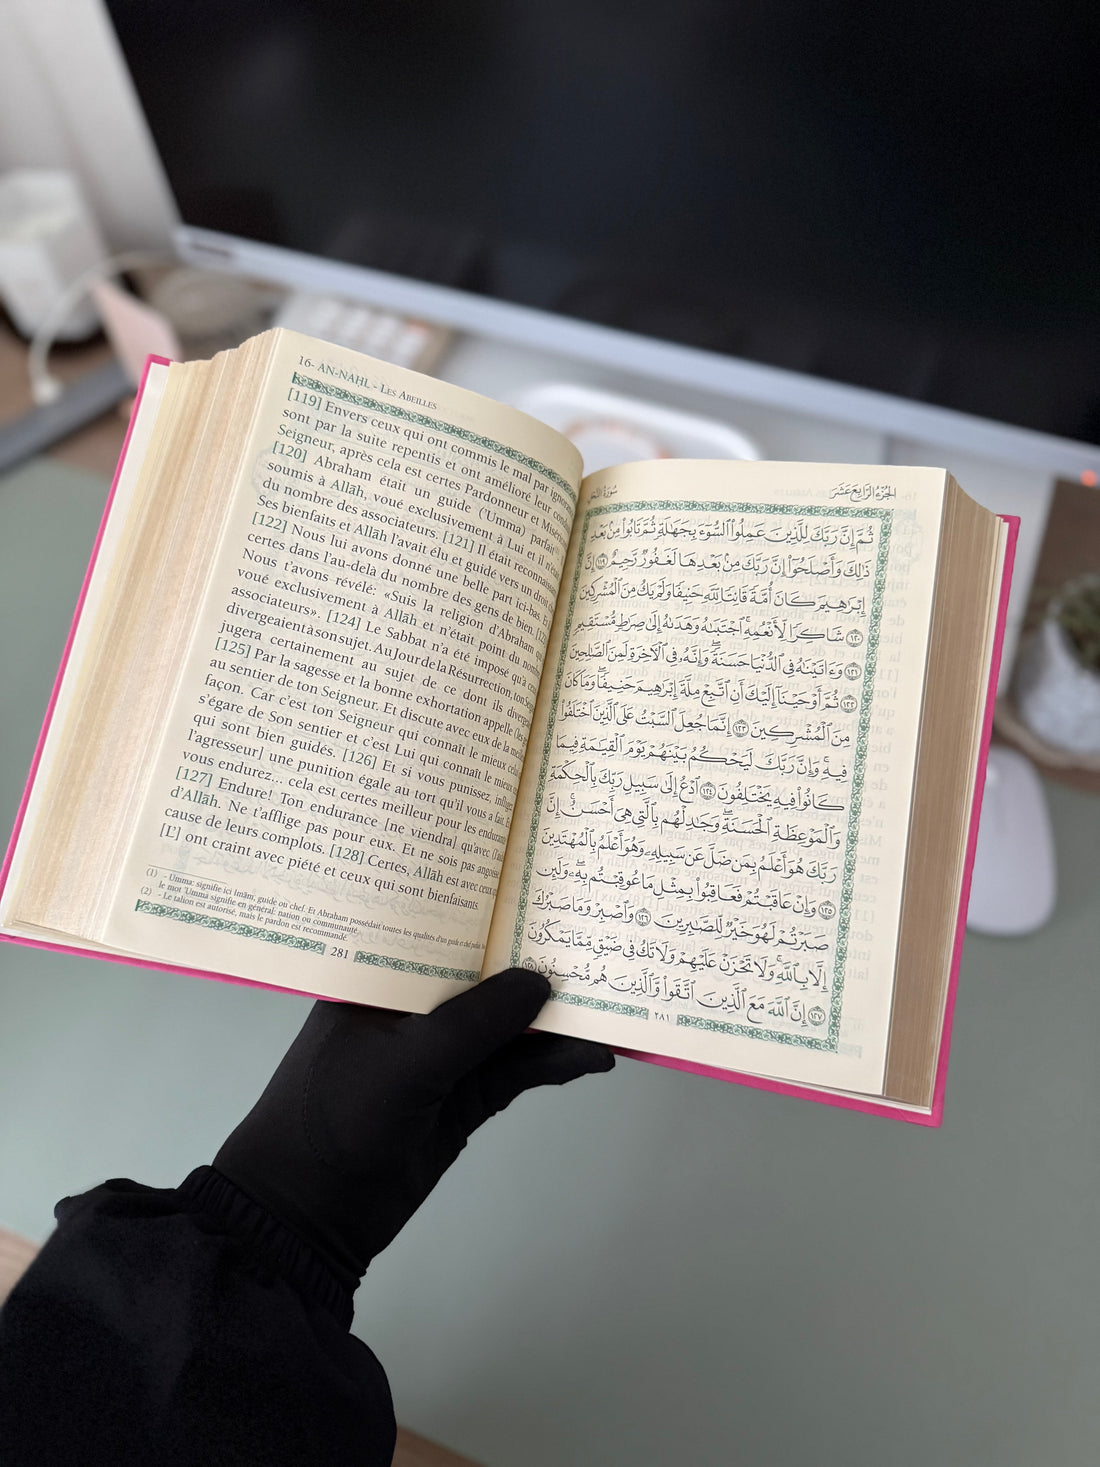 16- AN-NAHL - LES ABEILLES
[119] Envers ceux qui ont commis le mal par
sont par la suite repentis et ont amélioré leur
Seigneur, après cela est certes Pardonneur et
[120] Abraham était un guide ('Umma) parfait
soumis à Allāh, voué exclusivement à Lui et il
du nombre des associateurs. [121] Il était reconnaissant
Ses bienfaits et Allāh l'avait élu et guidé vers un droit
[122] Nous lui avons donné une belle part ici-bas.
certes dans l'au-delà du nombre des gens de bien.
Nous t'avons révélé: «Suis la religion d'Abraham
voué exclusivement à Allāh et n'était point du nombre
associateurs». [124] Le Sabbat n'a été imposé qu'à
divergeaient à son sujet. Au Jour de la Résurrection, ton
jugera certainement au sujet de ce dont ils
[125] Par la sagesse et la bonne exhortation appelle (les
au sentier de ton Seigneur. Et discute avec eux de la
façon. Car c'est ton Seigneur qui connaît le mieux
s'égare de Son sentier et c'est Lui qui connaît le mieux
qui sont bien guidés. [126] Et si vous punissez,
l'agresseur] une punition égale au tort qu'il vous a fait.
vous endurez... cela est certes meilleur pour les
[127] Endure! Ton endurance [ne viendra] qu'avec
d'Allāh. Ne t'afflige pas pour eux. Et ne sois pas
cause de leurs complots. [128] Certes, Allāh est avec ceux
[L'] ont craint avec piété et ceux qui sont bienfaisants.
(1) - Umma: signifie ici imām, guide ou chef. Et Abraham possédait toutes les qualités d'un guide
le mot 'Umma signifie en général: nation ou communauté.
(2) - Le talion est autorisé, mais le pardon est recommandé.
281
سُورَةُ النَّحْلِ الجُزْءُ الرَّابِعَ عَشَرَ
ثُمَّ إِنَّ رَبَّكَ لِلَّذِينَ عَمِلُوا۟ ٱلسُّوٓءَ بِجَهَٰلَةٍ ثُمَّ تَابُوا۟ مِنۢ بَعْدِ
ذَٰلِكَ وَأَصْلَحُوٓا۟ إِنَّ رَبَّكَ مِنۢ بَعْدِهَا لَغَفُورٌ رَّحِيمٌ ١١٩ إِنَّ
إِبْرَٰهِيمَ كَانَ أُمَّةً قَانِتًا لِّلَّهِ حَنِيفًا وَلَمْ يَكُ مِنَ ٱلْمُشْرِكِينَ
١٢٠ شَاكِرًا لِّأَنْعُمِهِ ۚ ٱجْتَبَىٰهُ وَهَدَىٰهُ إِلَىٰ صِرَٰطٍ مُّسْتَقِيمٍ
١٢١ وَءَاتَيْنَٰهُ فِى ٱلدُّنْيَا حَسَنَةً ۖ وَإِنَّهُۥ فِى ٱلْءَاخِرَةِ لَمِنَ ٱلصَّٰلِحِينَ
١٢٢ ثُمَّ أَوْحَيْنَآ إِلَيْكَ أَنِ ٱتَّبِعْ مِلَّةَ إِبْرَٰهِيمَ حَنِيفًا ۖ وَمَا كَانَ
مِنَ ٱلْمُشْرِكِينَ ١٢٣ إِنَّمَا جُعِلَ ٱلسَّبْتُ عَلَى ٱلَّذِينَ ٱخْتَلَفُوا۟
فِيهِ ۚ وَإِنَّ رَبَّكَ لَيَحْكُمُ بَيْنَهُمْ يَوْمَ ٱلْقِيَٰمَةِ فِيمَا
كَانُوا۟ فِيهِ يَخْتَلِفُونَ ١٢٤ ٱدْعُ إِلَىٰ سَبِيلِ رَبِّكَ بِٱلْحِكْمَةِ
وَٱلْمَوْعِظَةِ ٱلْحَسَنَةِ ۖ وَجَٰدِلْهُم بِٱلَّتِى هِىَ أَحْسَنُ ۚ إِنَّ
رَبَّكَ هُوَ أَعْلَمُ بِمَن ضَلَّ عَن سَبِيلِهِۦ ۖ وَهُوَ أَعْلَمُ بِٱلْمُهْتَدِينَ
١٢٥ وَإِنْ عَاقَبْتُمْ فَعَاقِبُوا۟ بِمِثْلِ مَا عُوقِبْتُم بِهِۦ ۖ وَلَئِن
صَبَرْتُمْ لَهُوَ خَيْرٌ لِّلصَّٰبِرِينَ ١٢٦ وَٱصْبِرْ وَمَا صَبْرُكَ
إِلَّا بِٱللَّهِ ۚ وَلَا تَحْزَنْ عَلَيْهِمْ وَلَا تَكُ فِى ضَيْقٍ مِّمَّا يَمْكُرُونَ
١٢٧ إِنَّ ٱللَّهَ مَعَ ٱلَّذِينَ ٱتَّقَوا۟ وَّٱلَّذِينَ هُم مُّحْسِنُونَ ١٢٨
٢٨١